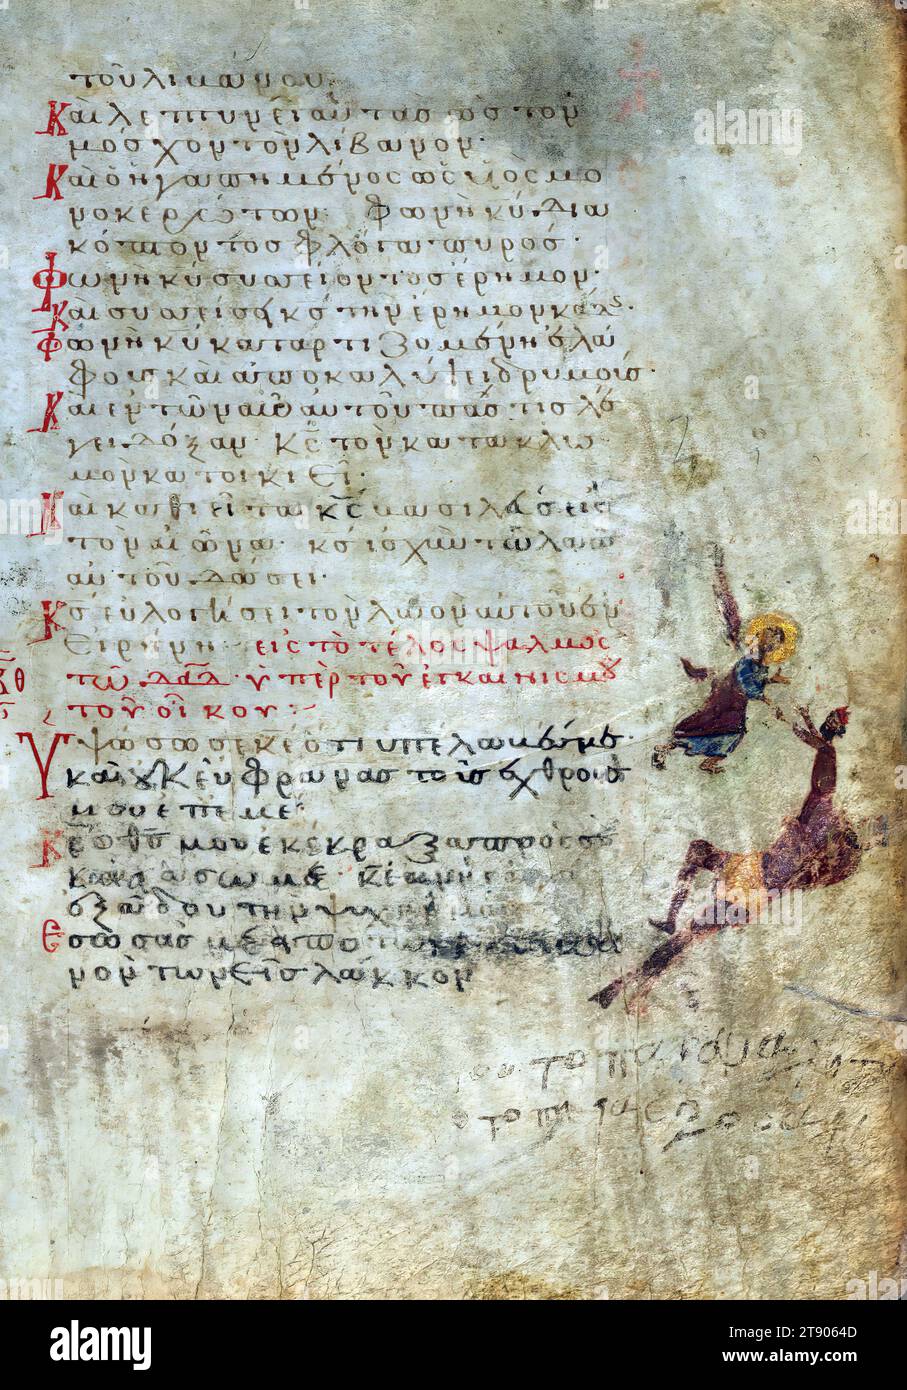 τοῦ λιβάνου·
Καὶ λεπτυνεῖ αὐτὰς ὡς τὸν
μόσχον τὸν λίβανον·
Καὶ ὁ ἠγαπημένος ὡς υἱὸς μο
νοκερώτων· Φωνὴ κῦ δια
κόπτοντος φλόγα πυρός·
Φωνὴ κῦ συσσείοντος ἔρημον·
Καὶ συσσείσει κς τὴν ἔρημον κάδης
Φωνὴ κῦ καταρτιζομένη ἐλά
φους καὶ ἀποκαλύψει δρυμούς·
Καὶ ἐν τῶ ναῶ αὐτοῦ πᾶς τις λέ
γει δόξαν· Κς τὸν κατακλυ
σμὸν κατοικιεῖ·
Καὶ καθιεῖται κς βασιλεὺς εἰς
τὸν αἰῶνα· κς ἰσχὺν τῶ λαῶ
αὐτοῦ δώσει·
Κς εὐλογήσει τὸν λαὸν αὐτοῦ ἐν
εἰρήνη· εἰς τὸ τέλος ψαλμὸς
τῶ δαδ ὑπὲρ τοῦ ἐγκαινισμοῦ
τοῦ οἴκου:
κθ
Ὑψώσω σε κε ὅτι ὑπέλαβές με·
καὶ οὐκ εὔφρανας τοὺς ἐχθρούς
μου ἐπ ἐμέ·
Κε ὁ θς μου ἐκέκραξα πρὸς σὲ
καὶ ἰάσω με κε ἀνήγαγες
ἐξ ἅδου τὴν ψυχήν μου
Ἔσωσάς με ἀπὸ τῶν καταβαι
νόντων εἰς λάκκον
alamy
Image ID: 2T9064D
www.alamy.com